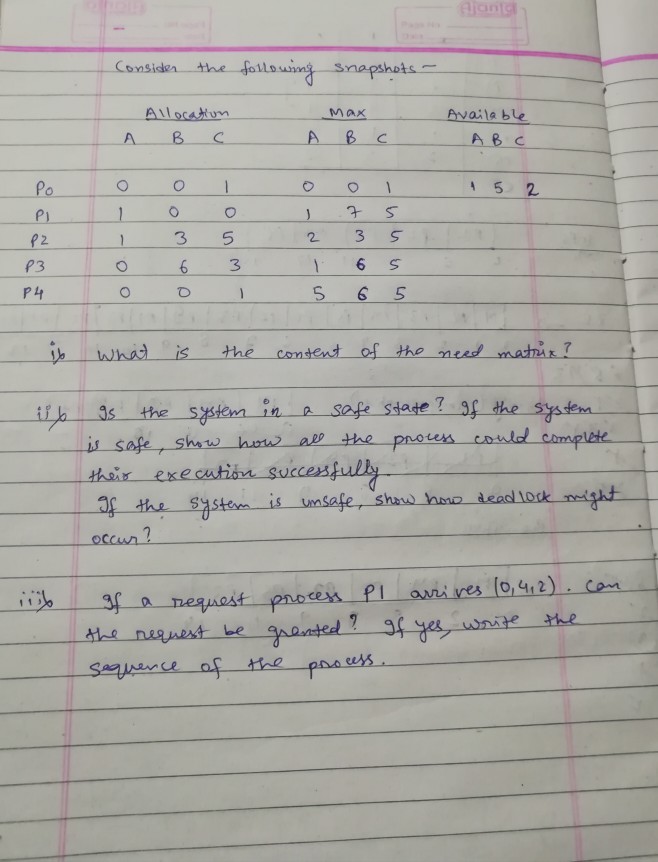 Ajanta
Consider the following snapshots –
Allocation Max Available
A B C A B C A B C
P0 0 0 1 0 0 1 1 5 2
P1 1 0 0 1 7 5
P2 1 3 5 2 3 5
P3 0 6 3 1 6 5
P4 0 0 1 5 6 5
i) What is the content of the need matrix?
ii) Is the system in a safe state? If the system
is safe, show how all the process could complete
their execution successfully.
If the system is unsafe, show how deadlock might
occur?
iii) If a request process P1 arrives (0,4,2). Can
the request be granted? If yes, write the
sequence of the process.